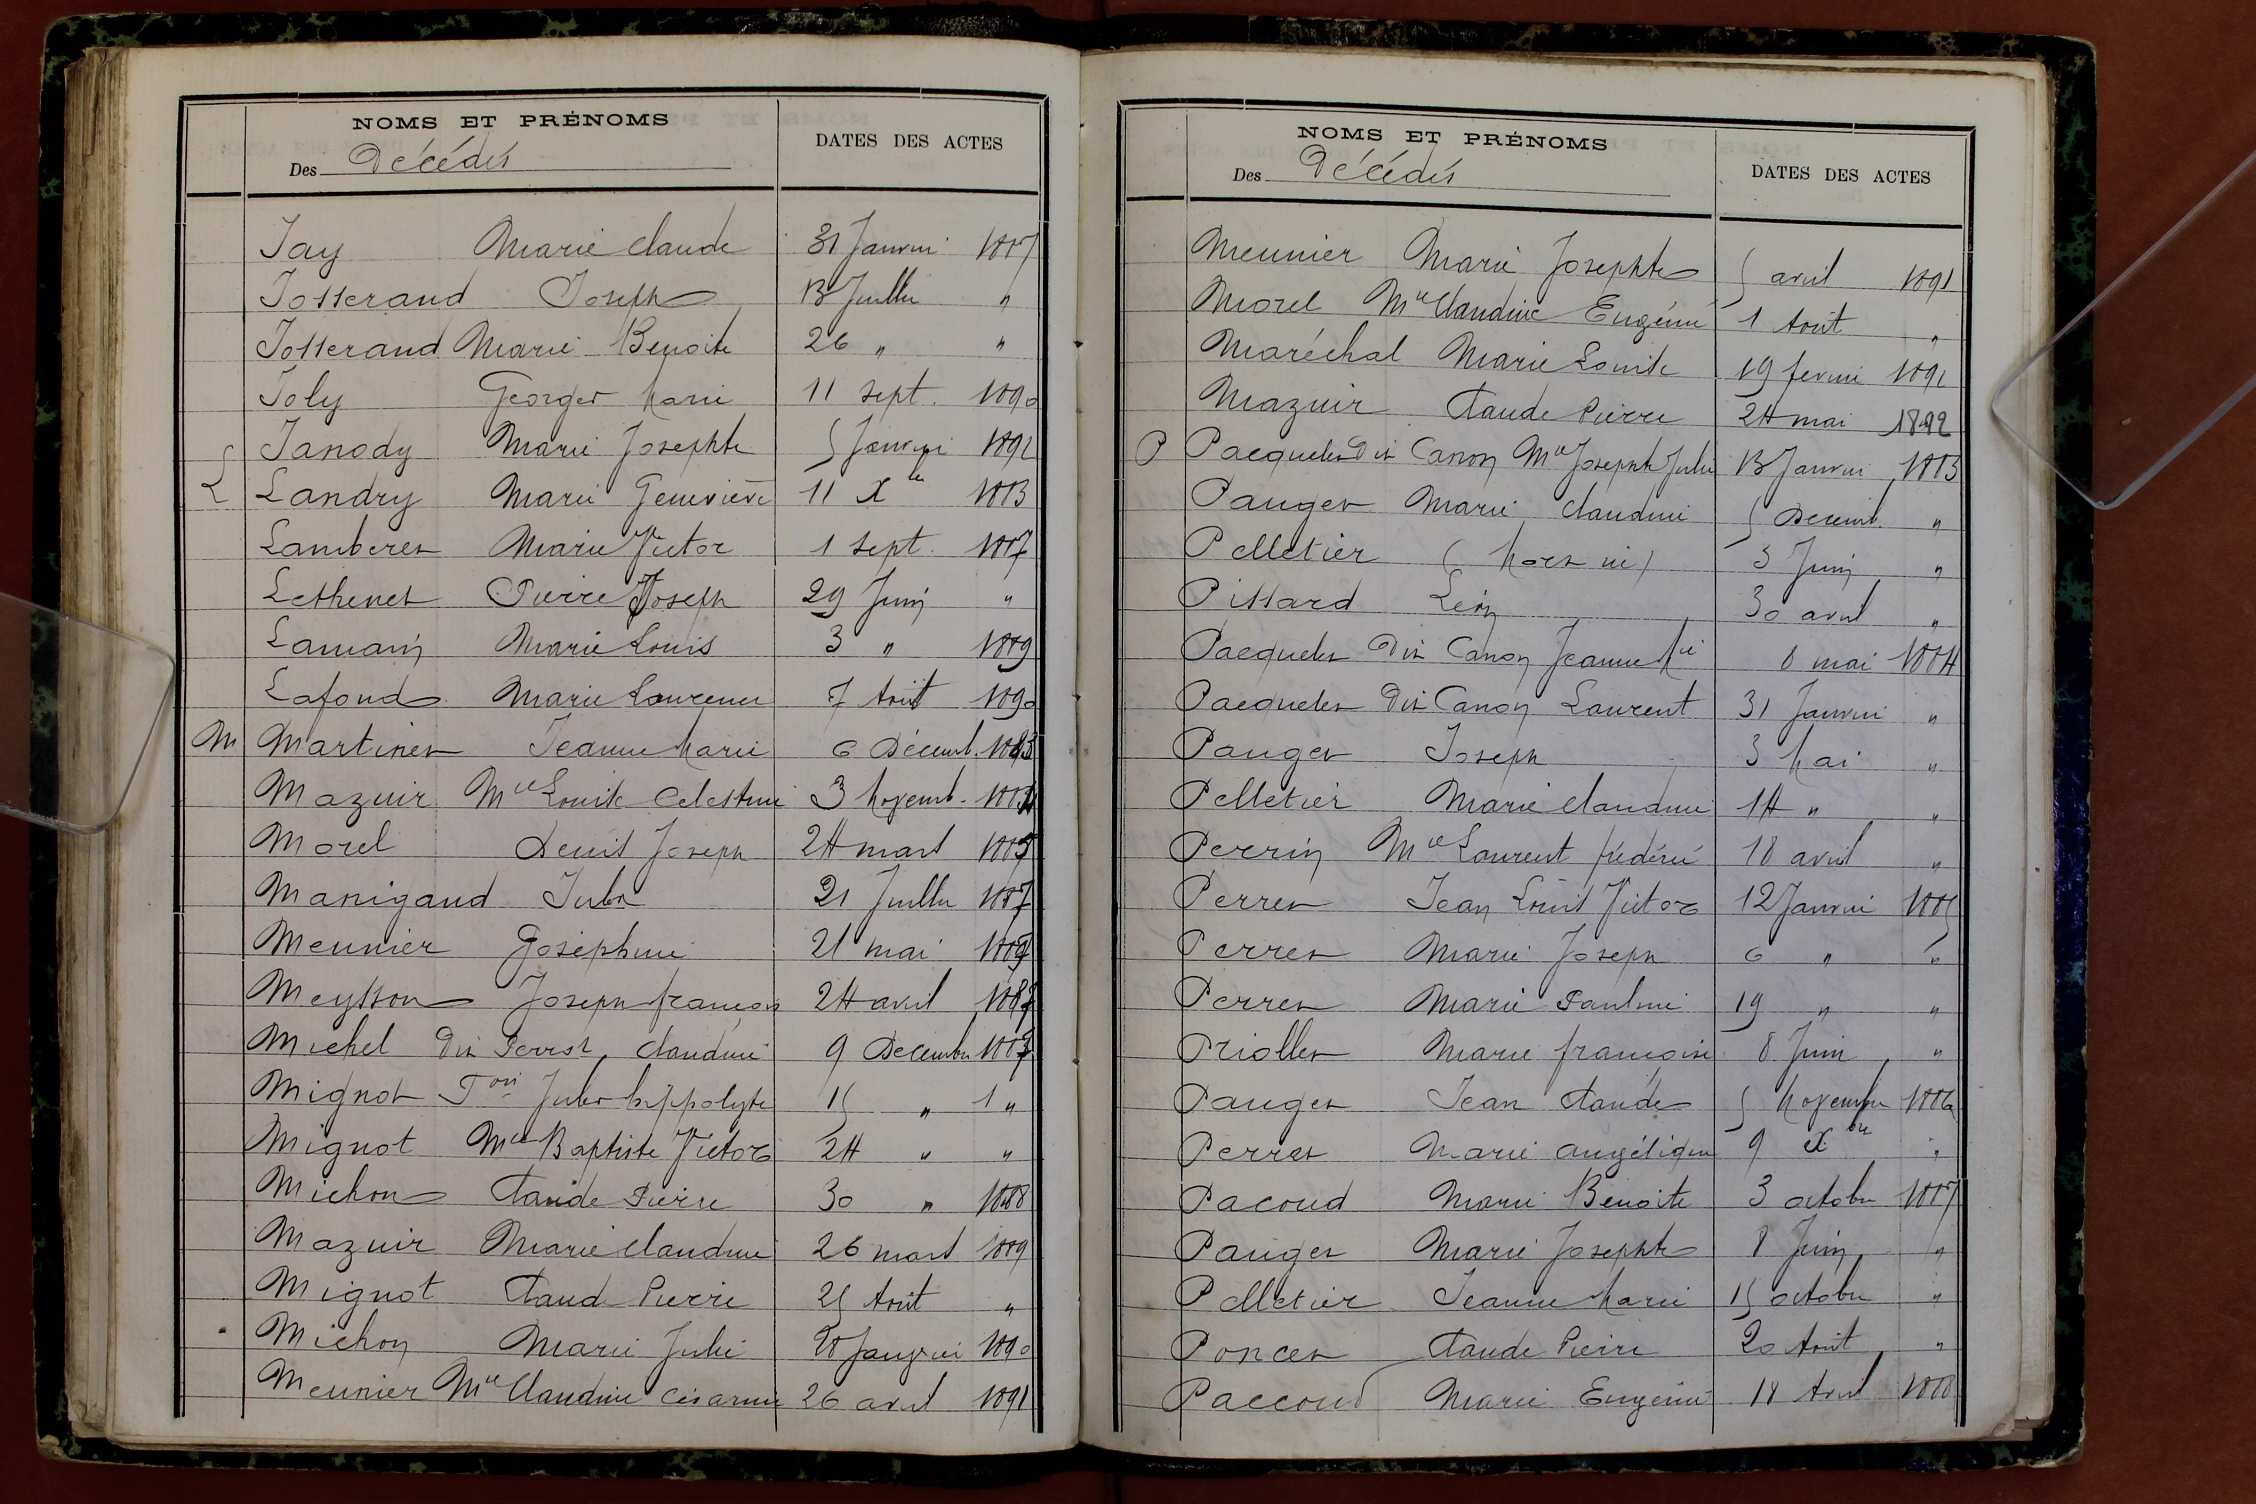 NOMS ET PRÉNOMS
Des Décédés
DATES DES ACTES
Jay Marie Claude 31 Janvier 1887
Josserand Joseph 13 Juillet "
Josserand Marie Benoite 26 " "
Joly Georges Marie 11 sept. 1890
Janody Marie Josephte 5 Janvier 1892
L Landry Marie Geneviève 11 Xbre 1883
Lamberet Marie Victor 1 sept. 1887
Lethenet Pierre Joseph 29 Juin "
Lamain Marie Louis 3 " 1889
Lafond Marie Laurence 7 Août 1890
M Martinet Jeanne Marie 6 Décemb. 1883
Mazuir Mie Louise Celestine 3 Novemb. 1884
Morel Denis Joseph 24 mars 1885
Manigaud Jules 21 Juillet 1887
Meunier Joséphine 21 mai 1887
Meysson Joseph françois 24 avril 1887
Michel dit Perret Claudine 9 Decembre 1887
Mignot Fois Jules hippolyte 15 " 1 "
Mignot Mie Baptiste Victor 24 " "
Michon Claude Pierre 30 " 1888
Mazuir Marie Claudine 26 mars 1889
Mignot Claud Pierre 25 Août "
Michon Marie Julie 28 Janvier 1890
Meunier Mie Claudine Césarine 26 avril 1891
NOMS ET PRÉNOMS
Des Décédés
DATES DES ACTES
Meunier Marie Josephte 5 avril 1891
Morel Mie Claudine Eugénie 1 Août "
Maréchal Marie Louise 19 fevrier 1891
Mazuir Claude Pierre 24 mai 1892
P Pacquelet dit Canon Mie Josephte Julie 13 Janvier 1883
Pauget Marie Claudine 5 Decemb. "
Pelletier (hors vie) 3 Juin "
Pissard Léon 30 avril "
Pacquelet dit Canon Jeanne Mie 8 mai 1884
Pacquelet dit Canon Laurent 31 Janvier "
Pauget Joseph 3 Mai "
Pelletier Marie Claudine 14 " "
Perrin Mie Laurent frédéric 18 avril "
Perret Jean Louis Victor 12 Janvier 1885
Perret Marie Joseph 6 " "
Perret Marie Pauline 19 " "
Priollet Marie françoise 8 Juin "
Pauget Jean Claude 5 Novembre 1886
Perret Marie Angélique 9 Xbre "
Pacoud Marie Benoite 3 octobre 1887
Pauget Marie Josephte 8 Juin "
Pelletier Jeanne Marie 15 octobre "
Poncet Claude Pierre 20 Août "
Paccoud Marie Eugénie 18 Avril 1888